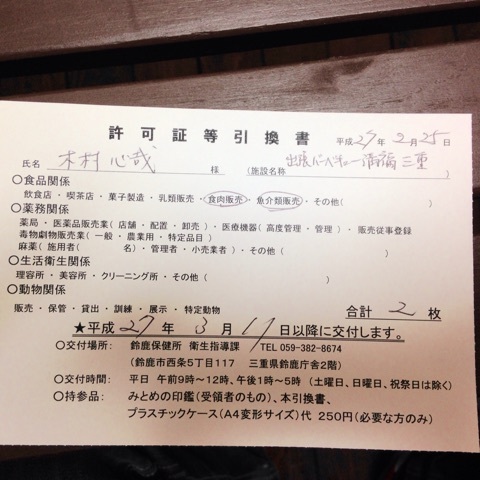 許可証等引換書 平成27年2月25日
氏名 木村 心哉 様 (施設名称 出張バーベキュー 満福 三重)
○食品関係
飲食店・喫茶店・菓子製造・乳類販売・食肉販売・魚介類販売・その他( )
○薬務関係
薬局・医薬品販売業(店舗・配置・卸売)・医療機器(高度管理・管理)・販売従事登録
毒物劇物販売業(一般・農業用・特定品目)
麻薬(施用者( 名)・管理者・小売業者)・その他( )
○生活衛生関係
理容所・美容所・クリーニング所・その他( )
○動物関係
販売・保管・貸出・訓練・展示・特定動物 合計 2 枚
★平成27年3月11日以降に交付します。
○交付場所: 鈴鹿保健所 衛生指導課 TEL 059-382-8674
(鈴鹿市西条5丁目117 三重県鈴鹿庁舎2階)
○交付時間: 平日 午前9時~12時、午後1時~5時 (土曜日、日曜日、祝祭日は除く)
○持参品: みとめの印鑑(受領者のもの)、本引換書、
プラスチックケース(A4変形サイズ)代 250円(必要な方のみ)